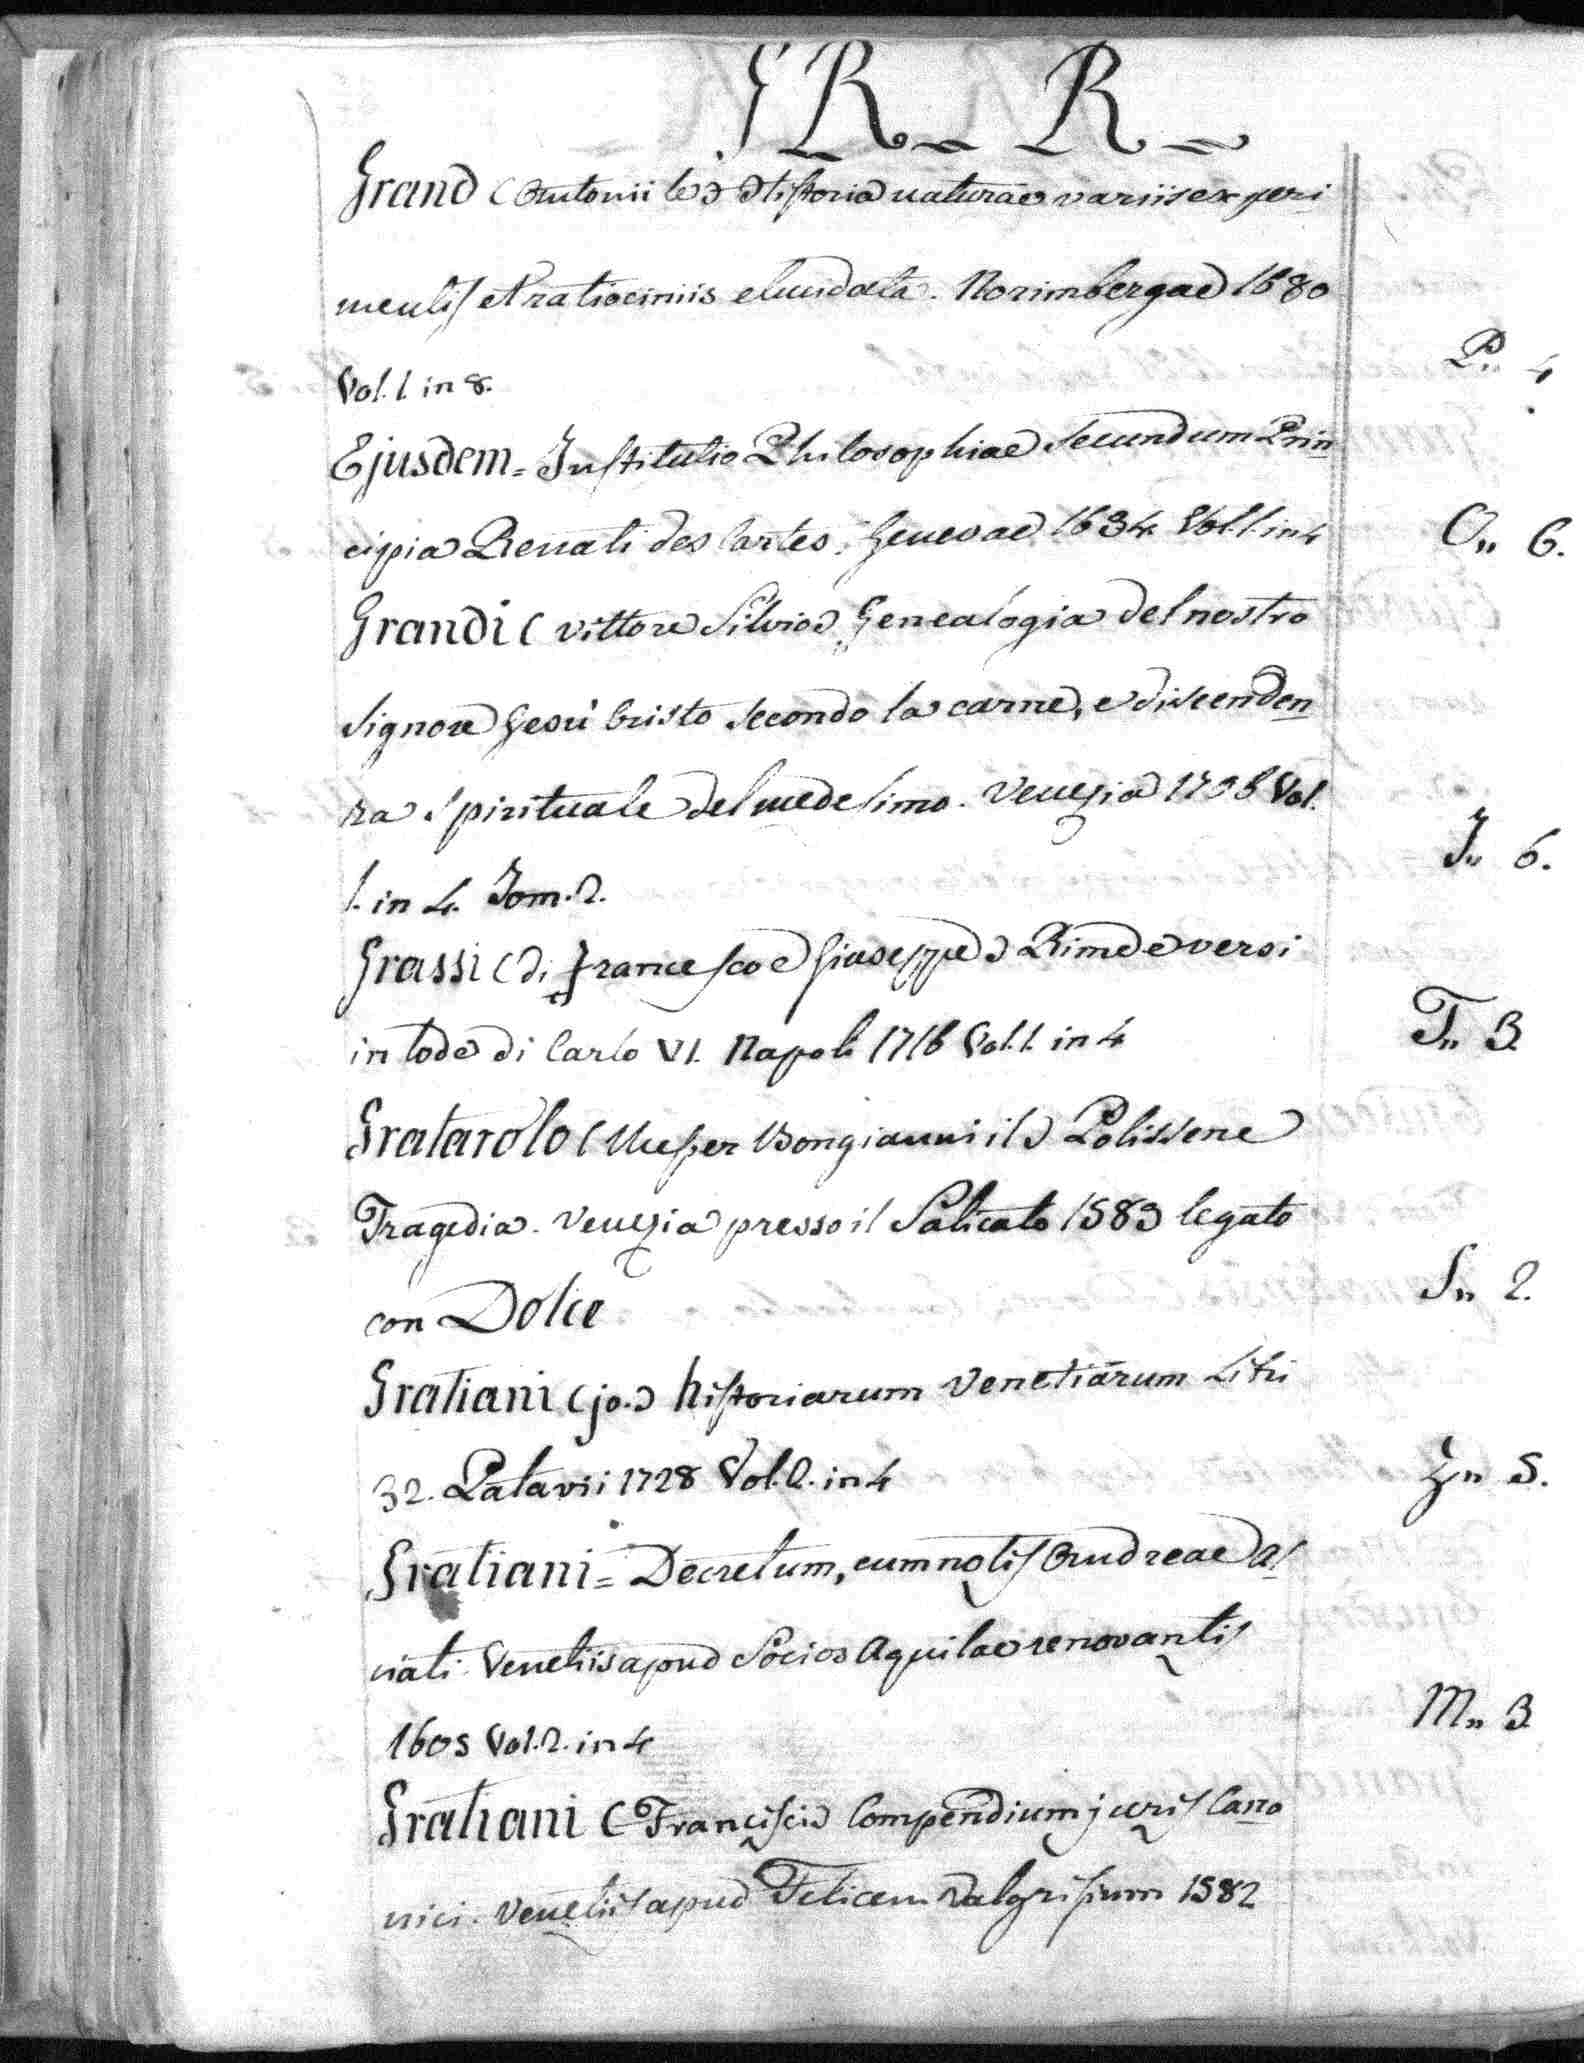 G R _ R _
Grand (Antonii le) Historia naturae variis experi
mentis et ratiociniis elucidata. Norimbergae 1680
Vol. 1. in 8. P.. 4
Ejusdem = Institutio Philosophiae secundum Prin
cipia Renati des Cartes. Genevae 1634 Vol. 1. in 4 O.. 6.
Grandi (Vittore Silvio) Genealogia del nostro
Signore Gesù Cristo secondo la carne, e discenden
za spirituale del medesimo. Venezia 1706 Vol.
1. in 4. Tom. 2. I.. 6.
Grassi (di Francesco e Giuseppe) Rime e versi
in lode di Carlo VI. Napoli 1716 Vol. 1. in 4 T.. 3
Gratarolo (Messer Bongianni il) Polissene
Tragedia. Venezia presso il Salicato 1583 legato
con Dolce S.. 2.
Gratiani (jo.) historiarum Venetiarum Libri
32. Patavii 1728 Vol. 2. in 4 Z.. 5.
Gratiani = Decretum, cum notis Andreae al
nati. Venetiis apud Socios Aquilae renovantis
1605 Vol. 2. in 4 M.. 3
Gratiani (Francisci) Compendium juris Cano
nici. Venetiis apud Felicem Valgrisium 1582